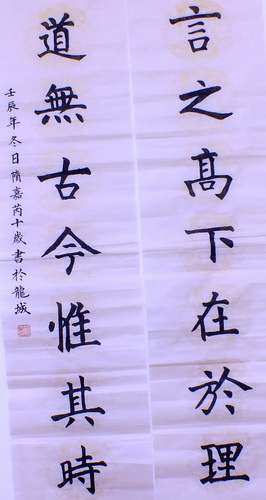 言之高下在於理
道無古今惟其時
壬辰年冬日隋嘉芮十歲書於龍城